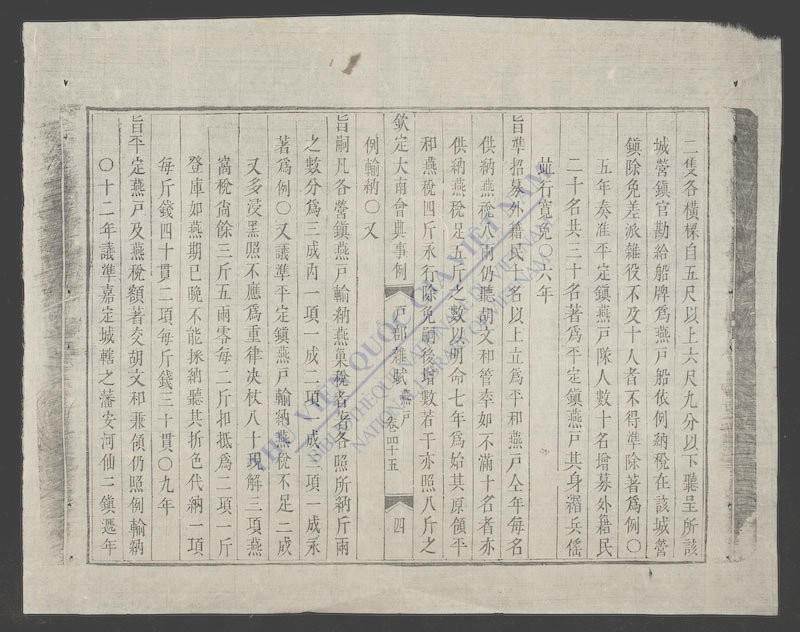 二隻各橫樑自五尺以上六尺九分以下聽呈所該
城營鎮官勘給船牌爲燕戸船依例納稅在該城營
鎮除免差派雜役不及十人者不得準除著爲例〇
五年奏准平定鎮燕戸隊人數十名增募外籍民
二十名共三十名著爲平定鎮燕戸其身緡兵徭
並行寬免〇六年
旨準招募外籍民十名以上立爲平和燕戸仝年每名
供納燕稅八兩仍聽胡文和管率如不滿十名者亦
供納燕稅足五斤之數以明命七年爲始其原領平
和燕稅四斤承行除免嗣後增數若干亦照八斤之
欽定大南會典事例 戸部雜賦 燕戸 卷四十五 四
例輸納〇又
旨嗣凡各營鎮燕戸輸納燕巢稅者各照所納斤兩
之數分爲三成內一項一成二項一成三項一成永
著爲例〇又議準平定鎮燕戸輸納燕稅不足二成
又多浸黑照不應爲重律决杖八十現解三項燕
窩稅尙餘三斤五兩零每二斤扣抵爲二項一斤
登庫如燕期已晚不能採納聽其折色代納一項
每斤錢四十貫二項每斤錢三十貫〇九年
旨平定燕戸及燕稅額著交胡文和兼領仍照例輸納
〇十二年議準嘉定城轄之藩安河仙二鎮遞年
THƯ VIỆN QUỐC GIA VIỆT NAM
BIBLIOTHEQUE NATIONALE DU VIETNAM
NATIONAL LIBRARY OF VIETNAM